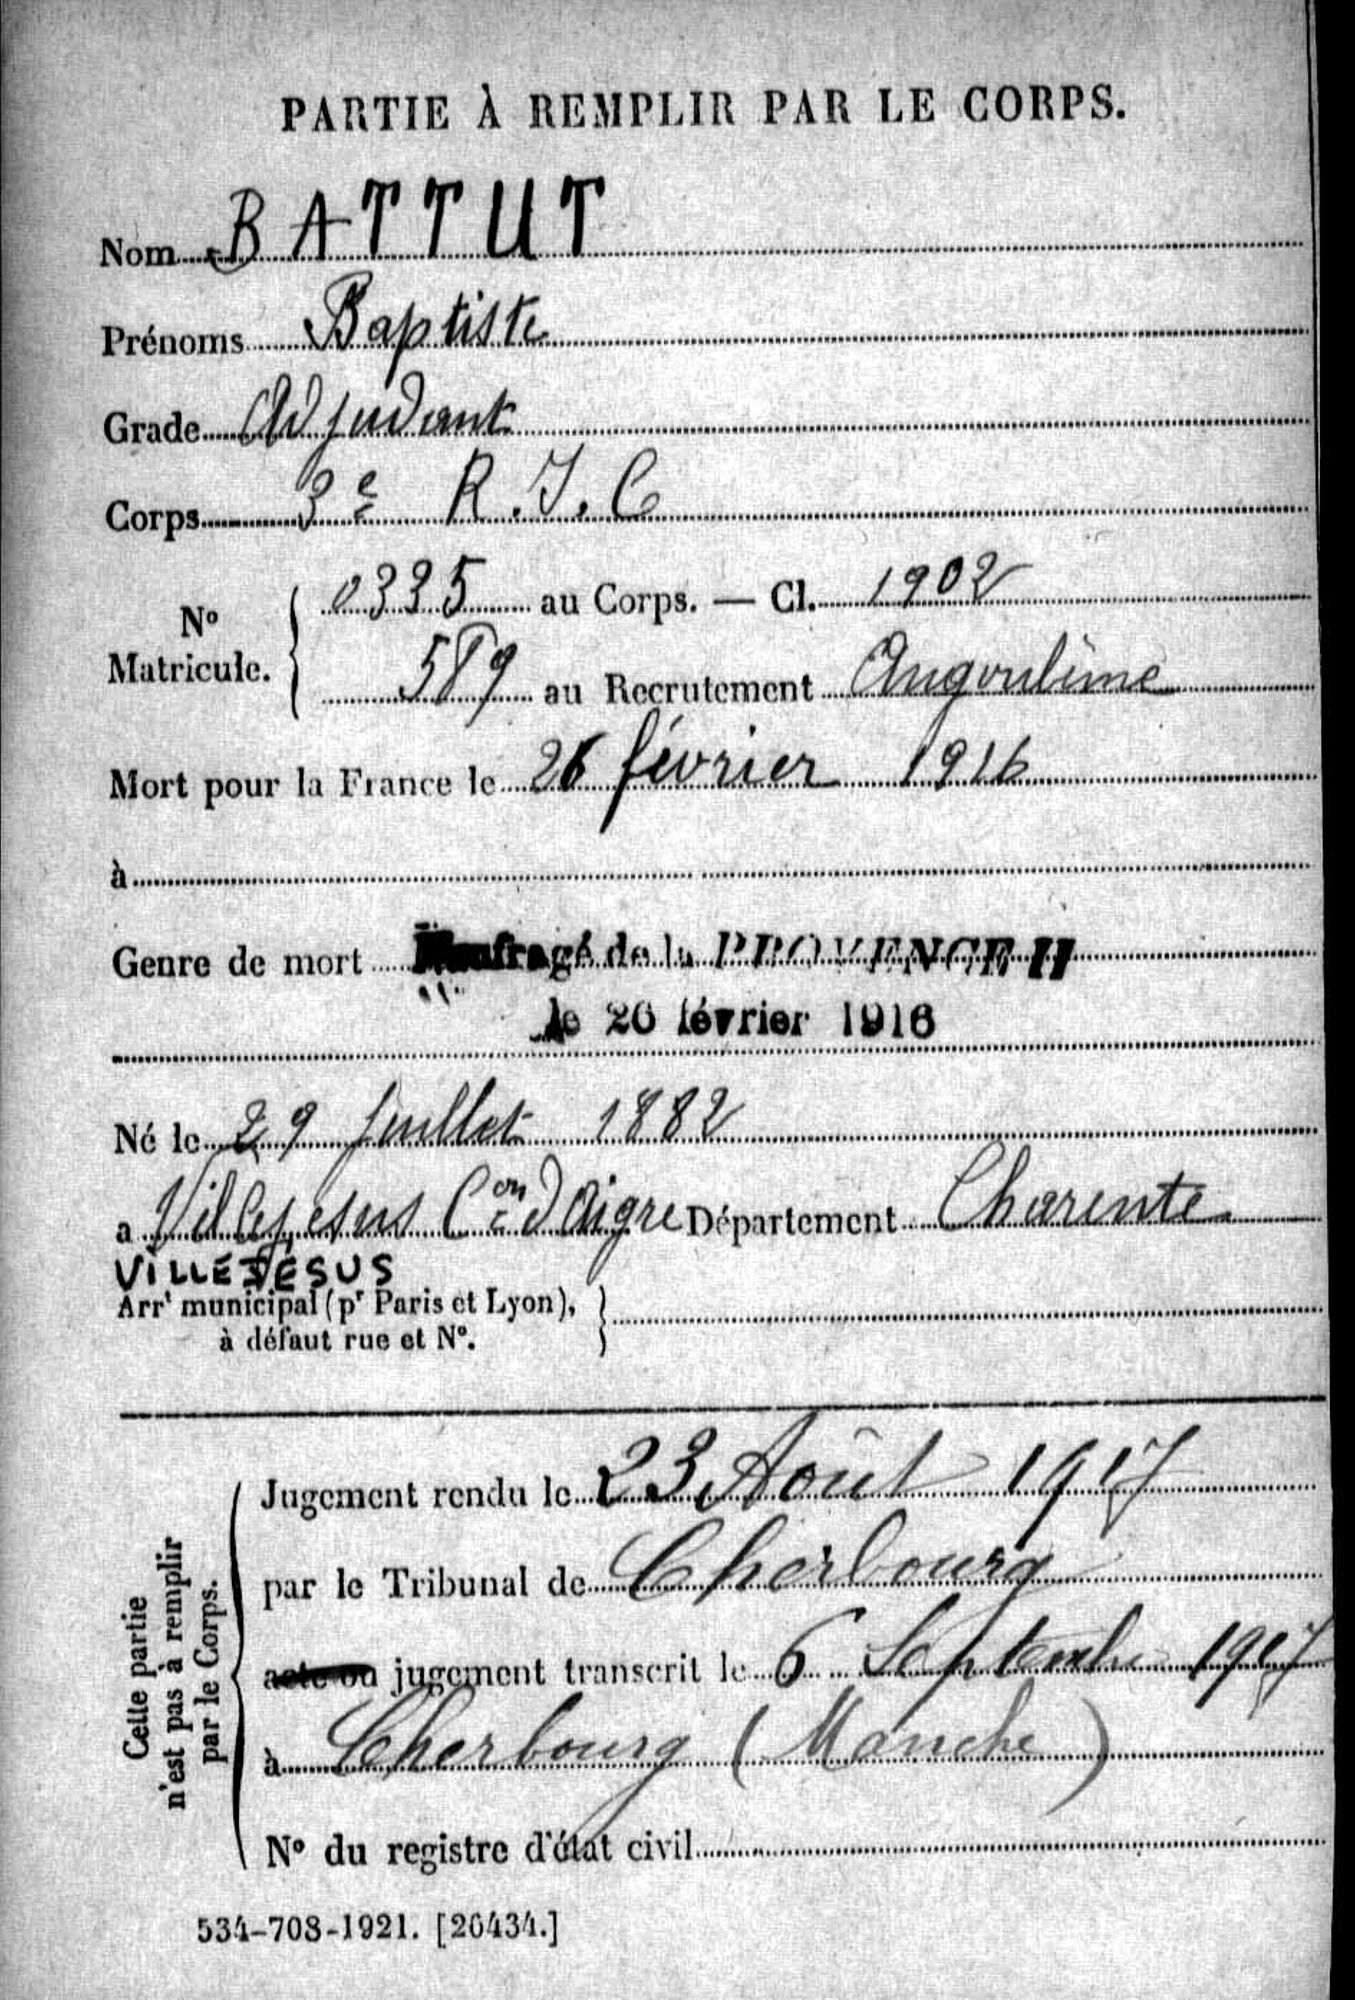 PARTIE À REMPLIR PAR LE CORPS.
Nom BATTUT
Prénoms Baptiste
Grade Adjudant
Corps 3e R.I.C
No Matricule. 0335 au Corps. — Cl. 1902
589 au Recrutement Angoulême
Mort pour la France le 26 février 1916
à
Genre de mort Naufragé de la PROVENCE II
le 26 février 1916
Né le 29 Juillet 1882
a Villejesus Con d'Aigre Département Charente
VILLEJÉSUS
Arrt municipal (pr Paris et Lyon),
à défaut rue et No.
Cette partie
n'est pas à remplir
par le Corps.
Jugement rendu le 23 Août 1917
par le Tribunal de Cherbourg
acte ou jugement transcrit le 6 Septembre 1917
à Cherbourg (Manche)
No du registre d'état civil
534-708-1921. [26434.]